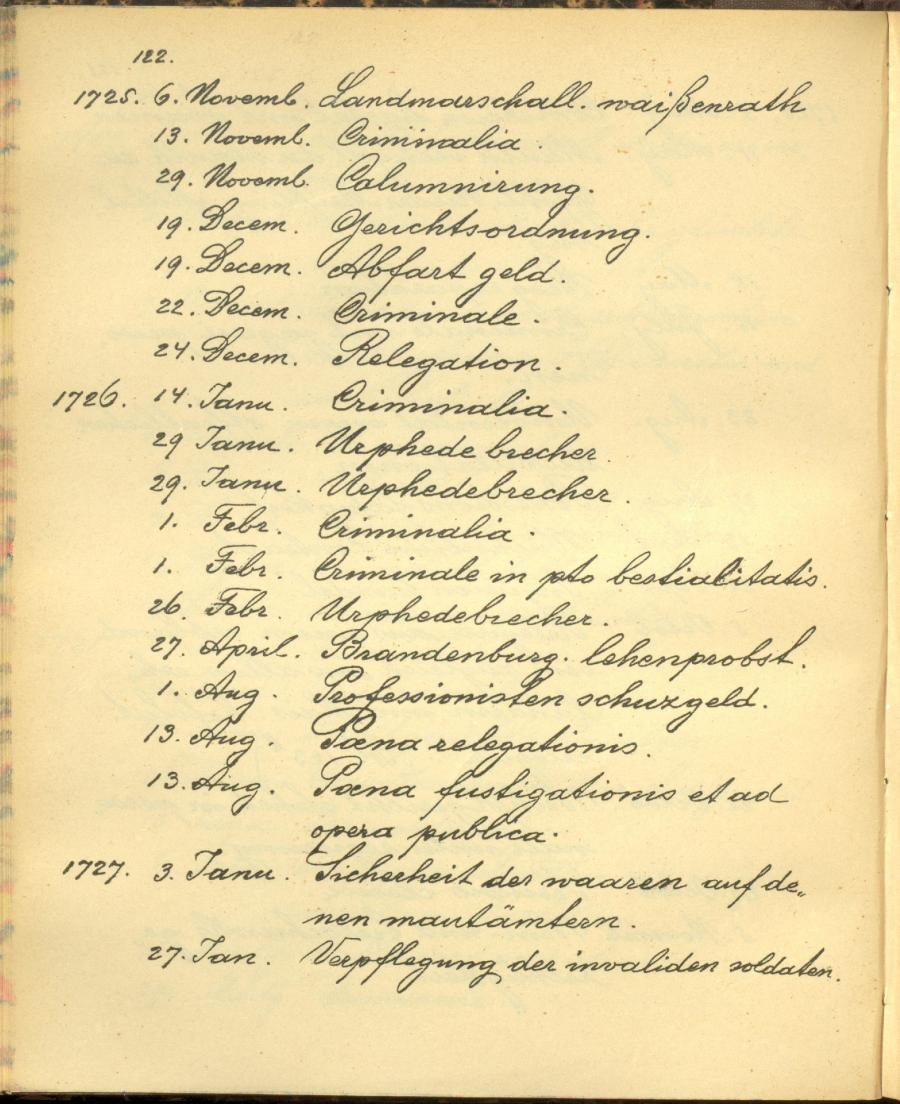 122.
1725. 6. Novemb. Landmarschall. waißenrath
13. Novemb. Criminaalia.
29. Novemb. Calumnirung.
19. Decem. Gerichtsordnung.
19. Decem. Abfart geld.
22. Decem. Criminale.
24. Decem. Relegation.
1726. 14. Ianu. Criminalia.
29 Ianu. Urphede brecher.
29. Ianu. Urphedebrecher.
1. Febr. Criminalia.
1. Febr. Criminale in pto bestialitatis.
26. Febr. Urphedebrecher.
27. April. Brandenburg. lehenprobst.
1. Aug. Professionisten schuzgeld.
13. Aug. Pœna relegationis.
13. Aug. Pœna fustigationis et ad
opera publica.
1727. 3. Ianu. Sicherheit der waaren auf de„
nen mautämtern.
27. Ian. Verpflegung der invaliden soldaten.